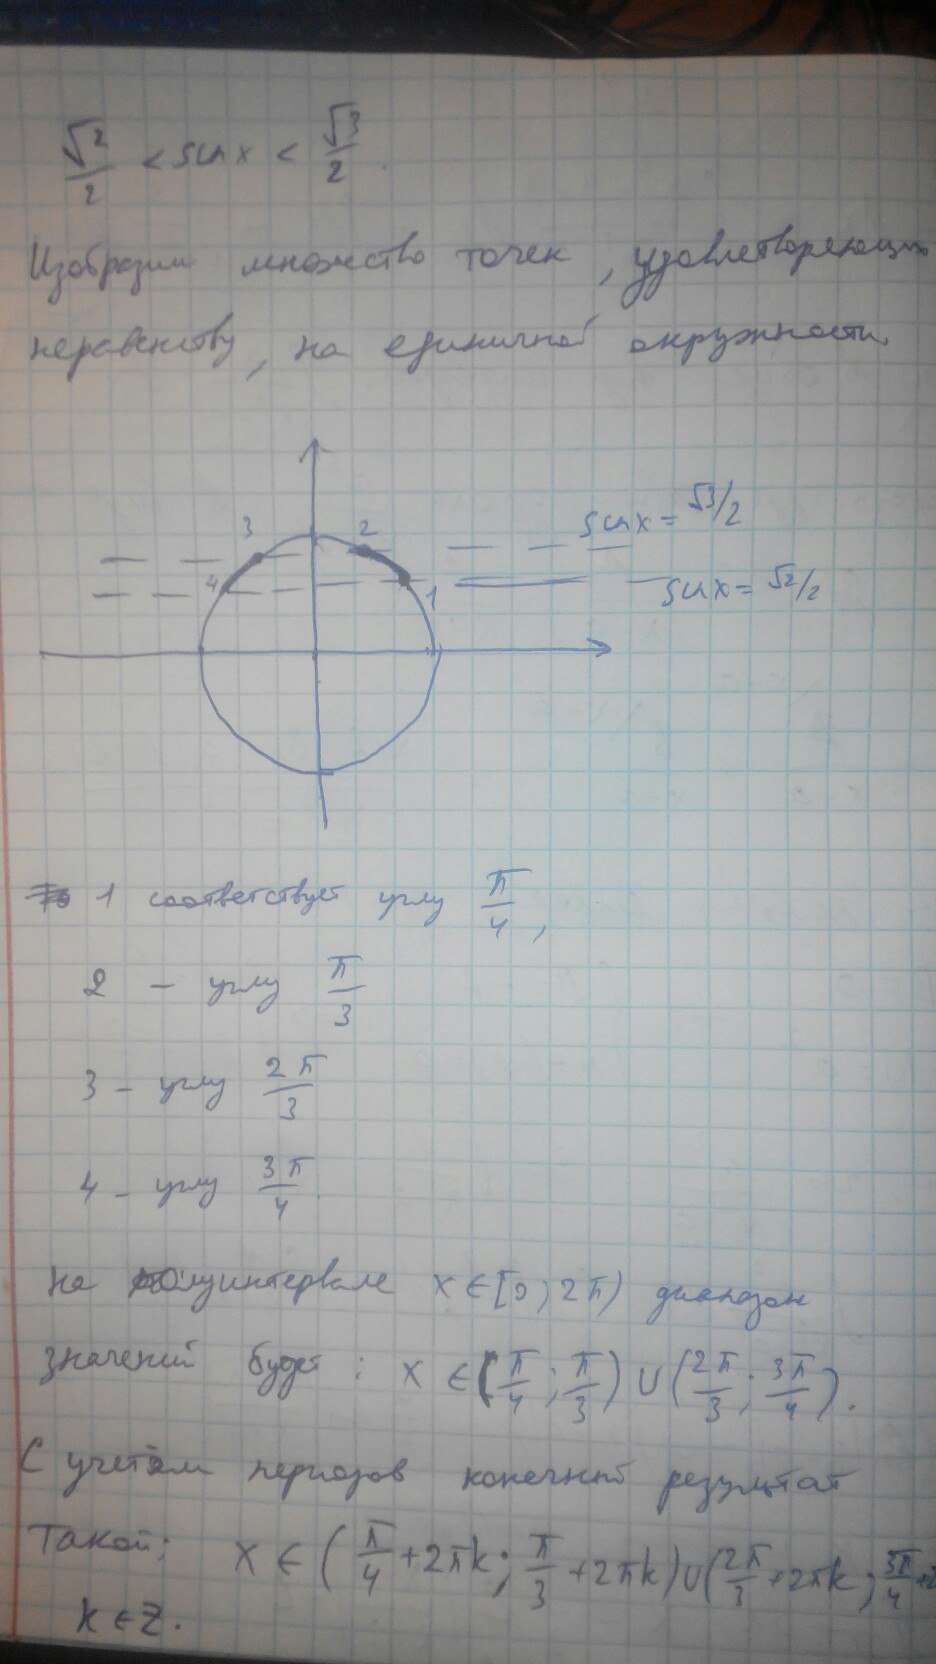 √2/2 < sin x < √3/2.
Изобразим множество точек, удовлетворяющих
неравенству, на единичной окружности.
3 2 sin x = √3/2
4 1 sin x = √2/2
1 соответствует углу π/4,
2 – углу π/3
3 – углу 2π/3
4 – углу 3π/4.
На полуинтервале x ∈ [0; 2π) диапазон
значений будет: x ∈ (π/4; π/3) ∪ (2π/3; 3π/4).
С учетом периодов конечный результат
такой: x ∈ (π/4 + 2πk; π/3 + 2πk) ∪ (2π/3 + 2πk; 3π/4 + 2
k ∈ Z.